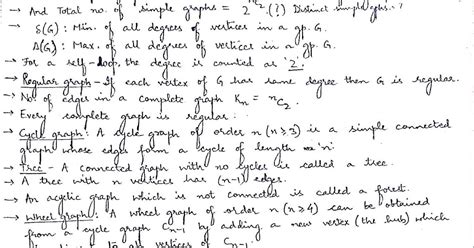 → And Total no. of simple graphs = 2^(nC2) (?) Distinct simple gphs.?
→ δ(G): Min. of all degrees of vertices in a gp. G.
Δ(G): Max. of all degrees of vertices in a gp. G.
→ For a self-loop, the degree is counted as '2'.
→ Regular graph - If each vertex of G has same degree then G is regular.
→ No. of edges in a complete graph Kn = nC2
→ Every complete graph is regular.
→ Cycle graph: A cycle graph of order n (n≥3) is a simple connected
graph whose edges form a cycle of length 'n'.
→ Tree - A connected graph with no cycles is called a tree.
→ A tree with n vertices has (n-1) edges.
→ An acyclic graph which is not connected is called a forest.
→ Wheel graph: A wheel graph of order n (n≥4) can be obtained
from a cycle graph Cn-1 by adding a new vertex (the hub) which
to are vertices of Cn-1.